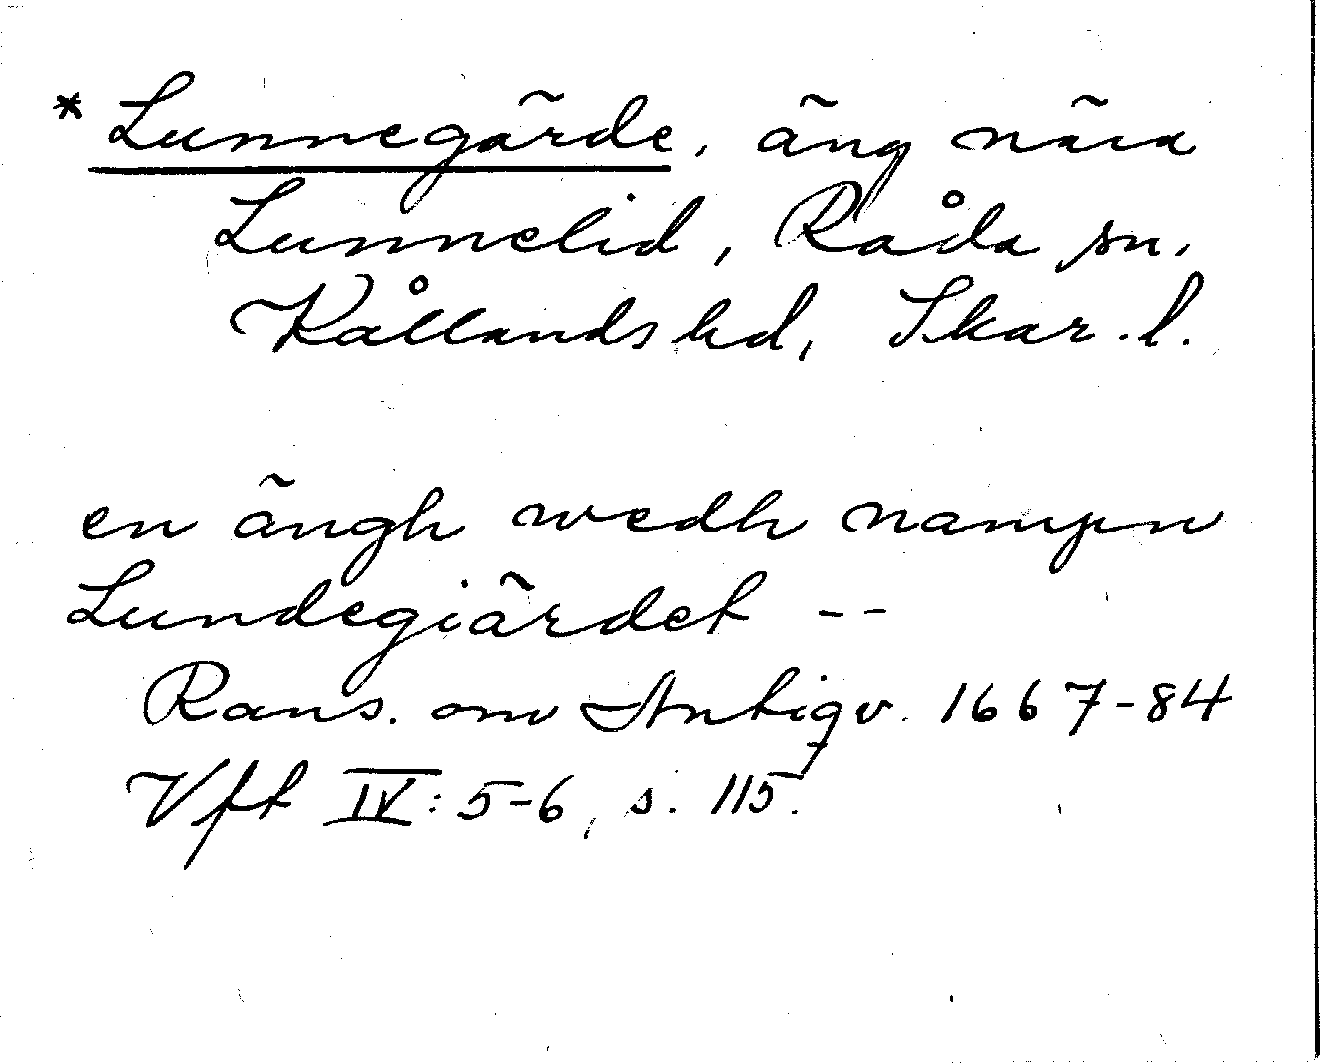 * Lunnegärde, äng nära
Lunnelid, Råda sn,
Kållands hd, Skar. l.
en ängh wedh nampn
Lundegiärdet --
Rans. om Antiqv. 1667-84
Vft IV: 5-6, s. 115.